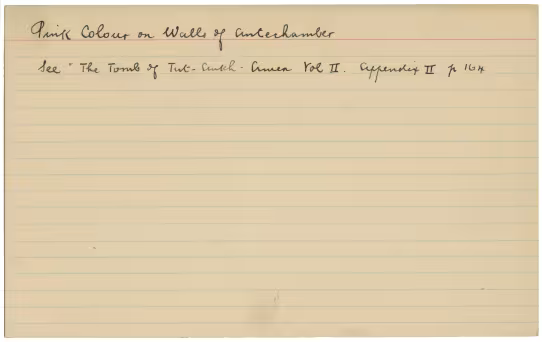 Pink Colour on Walls of Antechamber
See "The Tomb of Tut-Ankh-Amen Vol II. Appendix II p 164